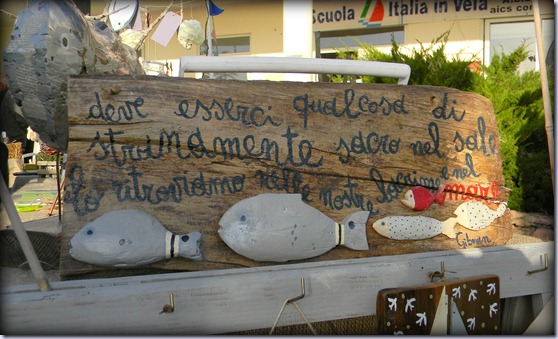 Scuola Italia in Vela
aics
deve esserci qualcosa di
stranamente sacro nel sale
lo ritroviamo nelle nostre lacrime e nel
mare
Gibran